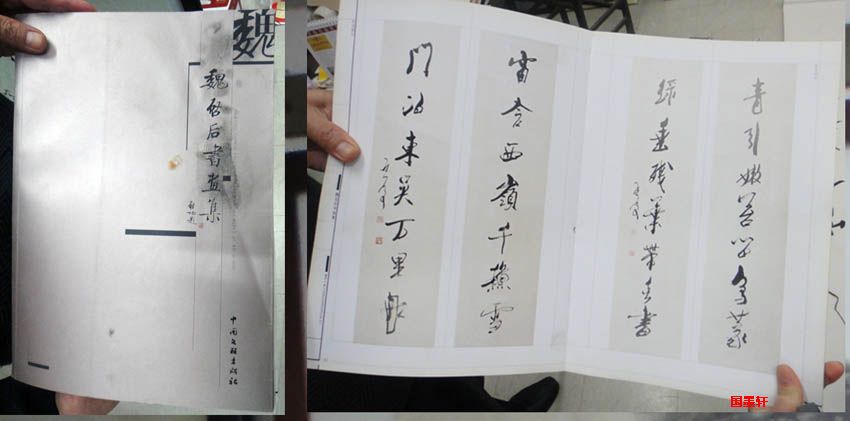 魏
魏启后書画集
中国文联出版社
青引嫩苔留鸟篆
绿垂残葉带虫書
窗含西嶺千秋雪
門泊東吴万里船
国美轩